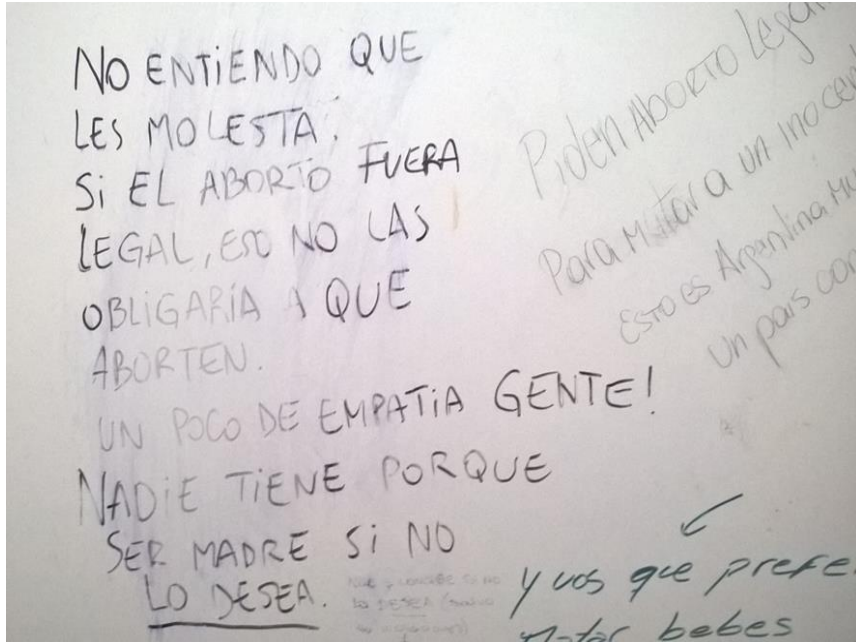 NO ENTIENDO QUE
LES MOLESTA.
SI EL ABORTO FUERA
LEGAL, ESO NO LAS
OBLIGARÍA A QUE
ABORTEN.
UN POCO DE EMPATIA GENTE!
NADIE TIENE PORQUE
SER MADRE SI NO
LO DESEA.
SI NO
LO DESEA
Piden ABORTO Legal
Para Matar a un inocen
ESTO es Argentina
un pais con
y vos que prefe
bebes